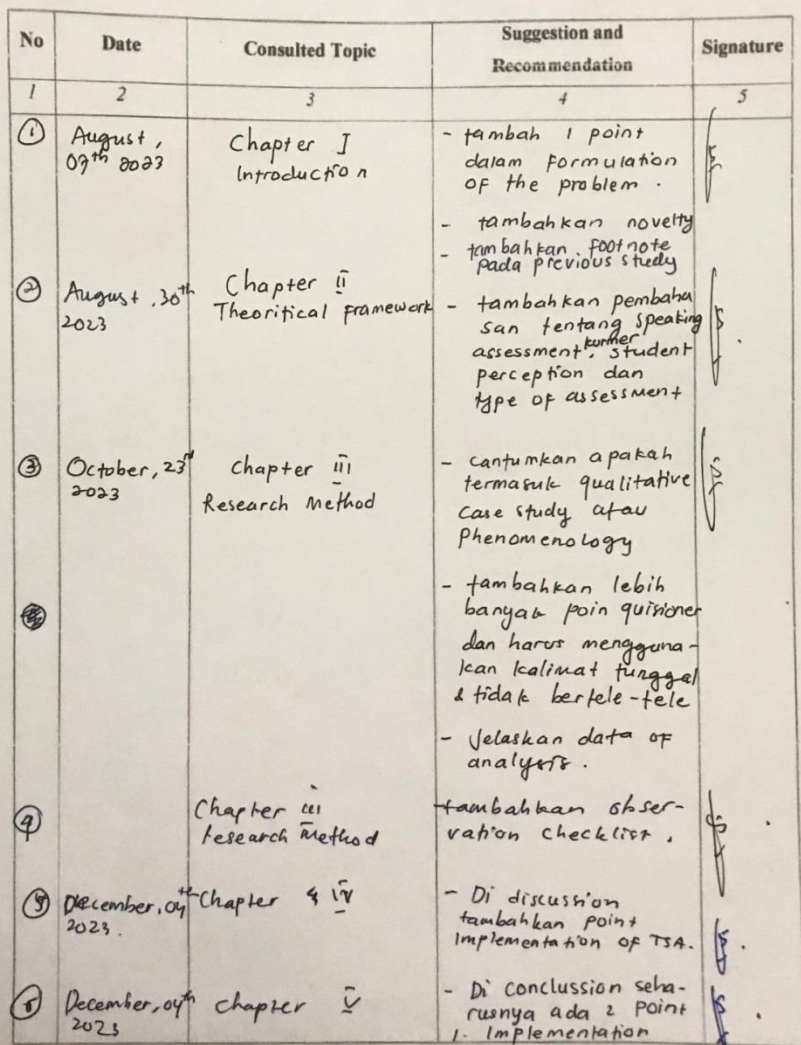 No Date Consulted Topic Suggestion and Recommendation Signature
1 2 3 4 5
① August, 07th 2023 Chapter I Introduction
- tambah 1 point
dalam formulation
of the problem.
- tambahkan novelty
- tambahkan footnote
pada previous study
② August, 30th 2023 Chapter II Theoritical framework
- tambahkan pembaha
san tentang speaking
assessment, student
perception dan
type of assessment
③ October, 23rd 2023 Chapter III Research Method
- cantumkan apakah
termasuk qualitative
case study atau
phenomenology
- tambahkan lebih
banyak poin quisioner
dan harus mengguna-
kan kalimat tunggal
& tidak bertele-tele
- Jelaskan data of
analysis.
④ Chapter III research method
- tambahkan obser-
vation checklist.
⑤ December, 04th 2023. Chapter 4 IV
- Di discussion
tambahkan point
implementation of TSA.
⑥ December, 04th 2023 Chapter V
- Di conclussion seha-
rusnya ada 2 point
1. Implementation